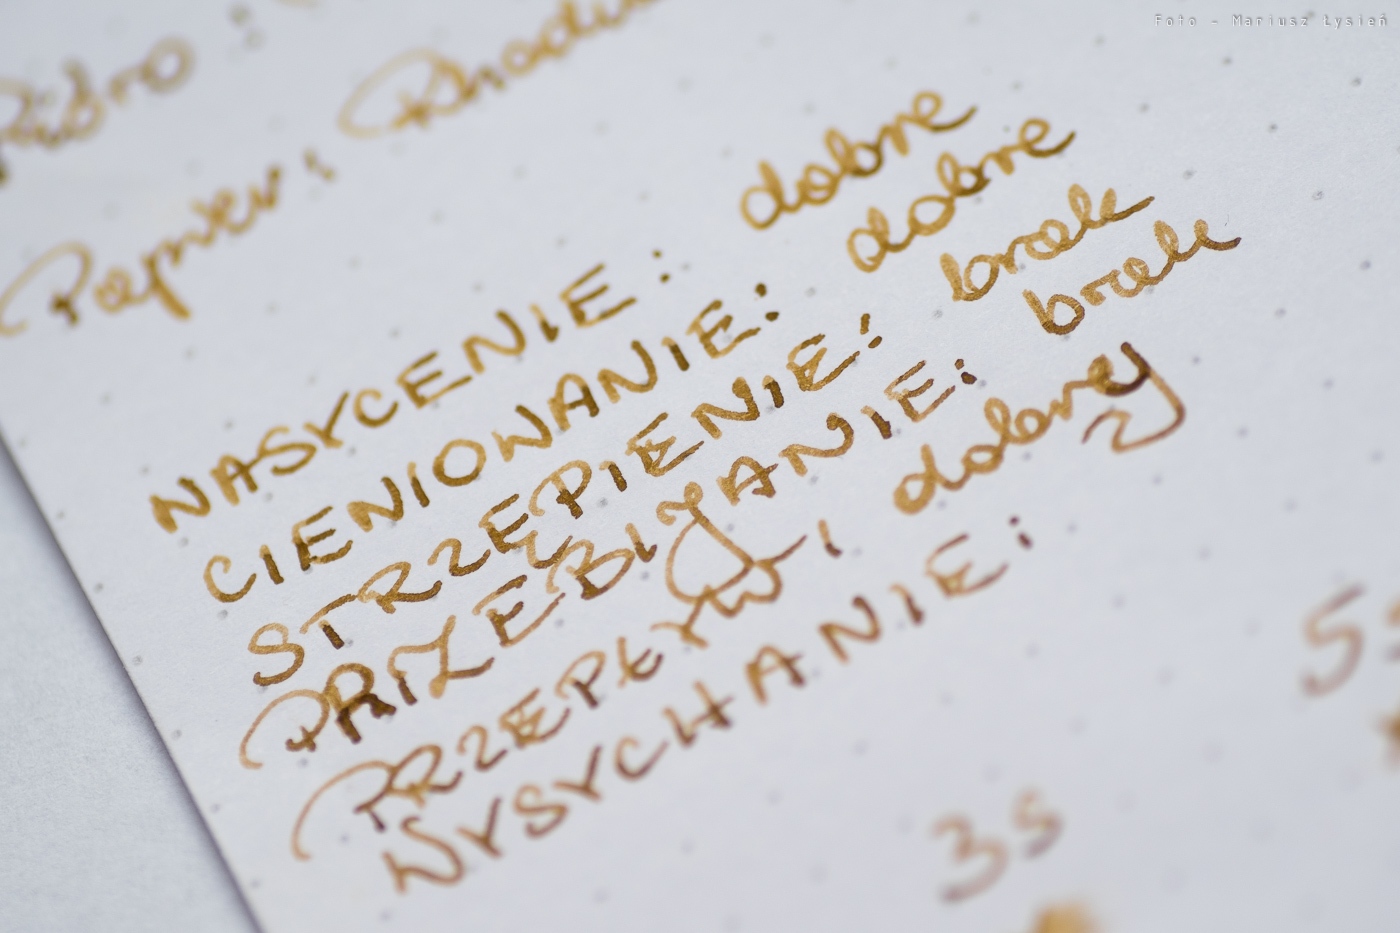 Foto - Mariusz Łysień
Pióro :
Papier : Rhodia
NASYCENIE : dobre
CIENIOWANIE: dobre
STRZĘPIENIE: brak
PRZEBIJANIE: brak
PRZEPŁYW : dobry
WYSYCHANIE:
3s
5s